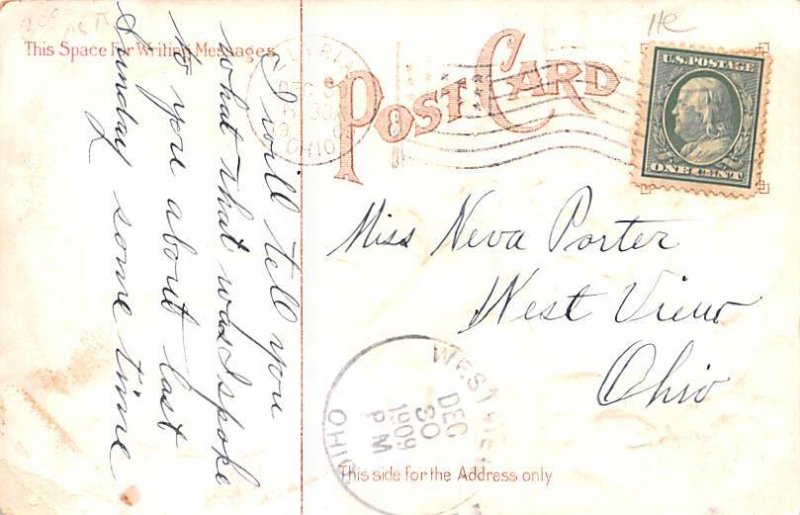 This Space For Writing Messages
POST CARD
U.S. POSTAGE
ONE CENT
I will tell you
what that was I spoke
to you about last
Sunday some time.
Miss Neva Porter
West View
Ohio
DEC
OHIO
WEST VIEW
DEC
30
1909
P M
OHIO
This side for the Address only
He